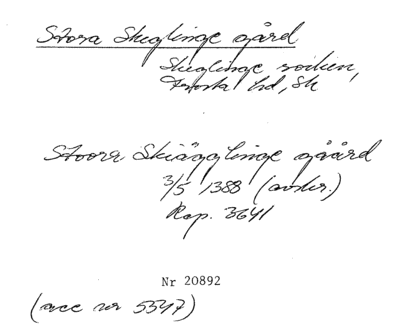 Stora Skeglinge gård
Skeglinge socken,
Frosta hd, Sk
Stoora Skiägglinge gåård
3/5 1388 (avskr.)
Rep. 3641
Nr 20892
(acc nr 5347)